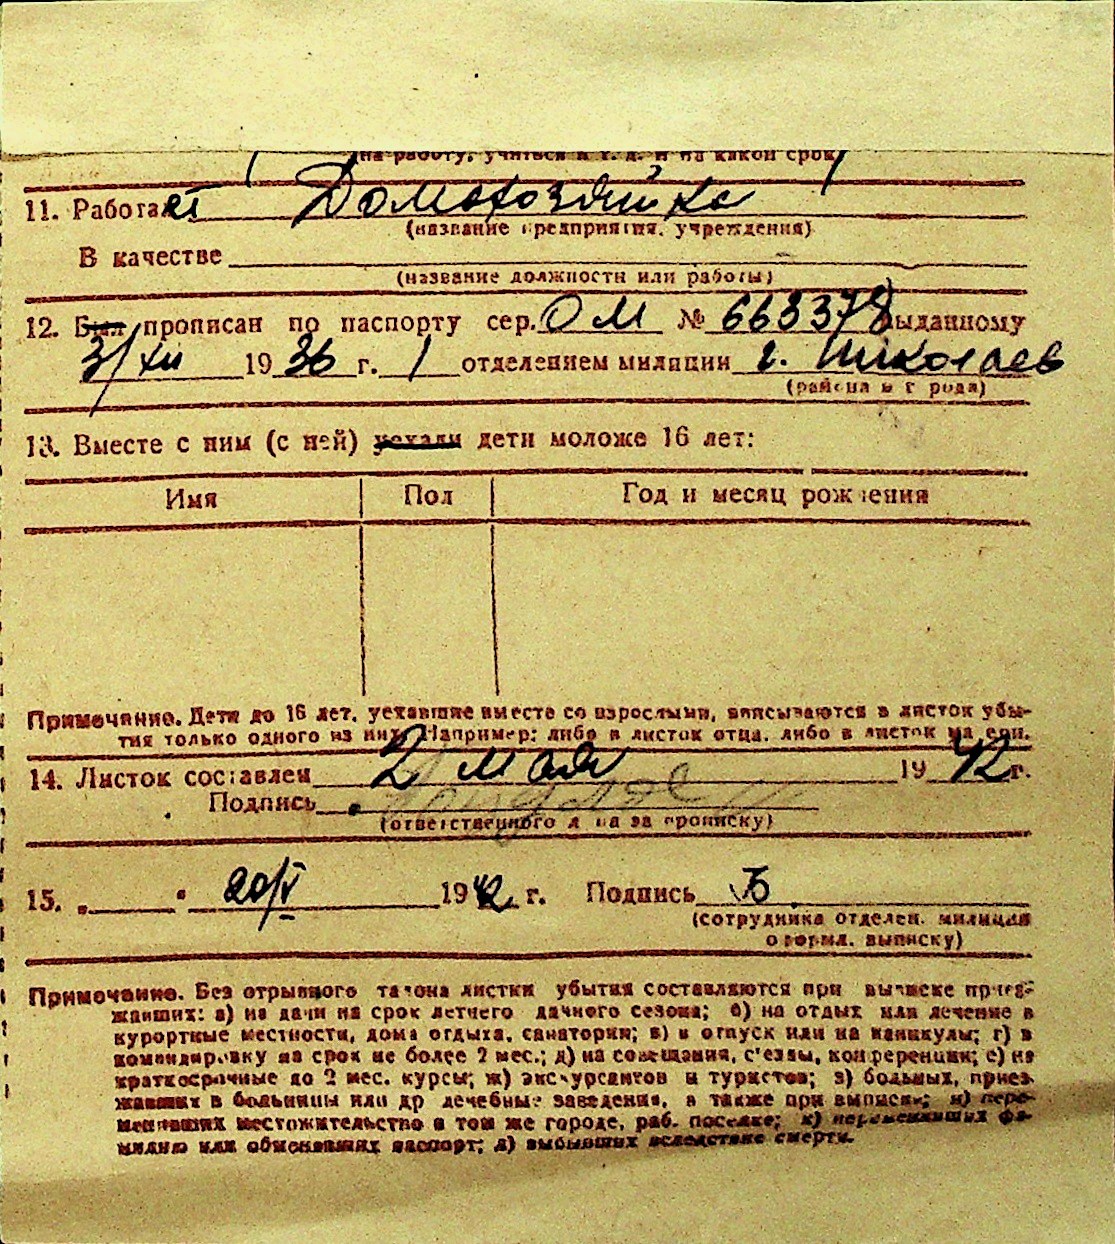 на работу, учиться и т. д. и на какой срок)
11. Работает Домохозяйка
(название предприятия, учреждения)
В качестве
(название должности или работы)
12. Был прописан по паспорту сер. ОМ № 663378 выданному
3/XII 1936 г. 1 отделением милиции г. Николаев
(района и города)
13. Вместе с ним (с ней) уехали дети моложе 16 лет:
Имя Пол Год и месяц рождения
Примечание. Дети до 16 лет, уехавшие вместе со взрослыми, вписываются в листок убы-
тия только одного из них. Например: либо в листок отца, либо в листок матери.
14. Листок составлен 2 мая 1942 г.
Подпись
(ответственного лица за прописку)
15. „ “ 20/V 1942 г. Подпись
(сотрудника отделен. милиции
оформл. выписку)
Примечание. Без отрывного талона листки убытия составляются при выписке приез-
жавших: а) на дачи на срок летнего дачного сезона; б) на отдых или лечение в
курортные местности, дома отдыха, санатории; в) в отпуск или на каникулы; г) в
командировку на срок не более 2 мес.; д) на совещания, с'езды, конференции; е) на
краткосрочные до 2 мес. курсы; ж) экскурсантов и туристов; з) больных, приез-
жавших в больницы или др лечебные заведения, а также при выписке; и) пере-
менивших местожительство в том же городе, раб. поселке; к) переменивших фа-
милию или обменявших паспорт; л) выбывших вследствие смерти.